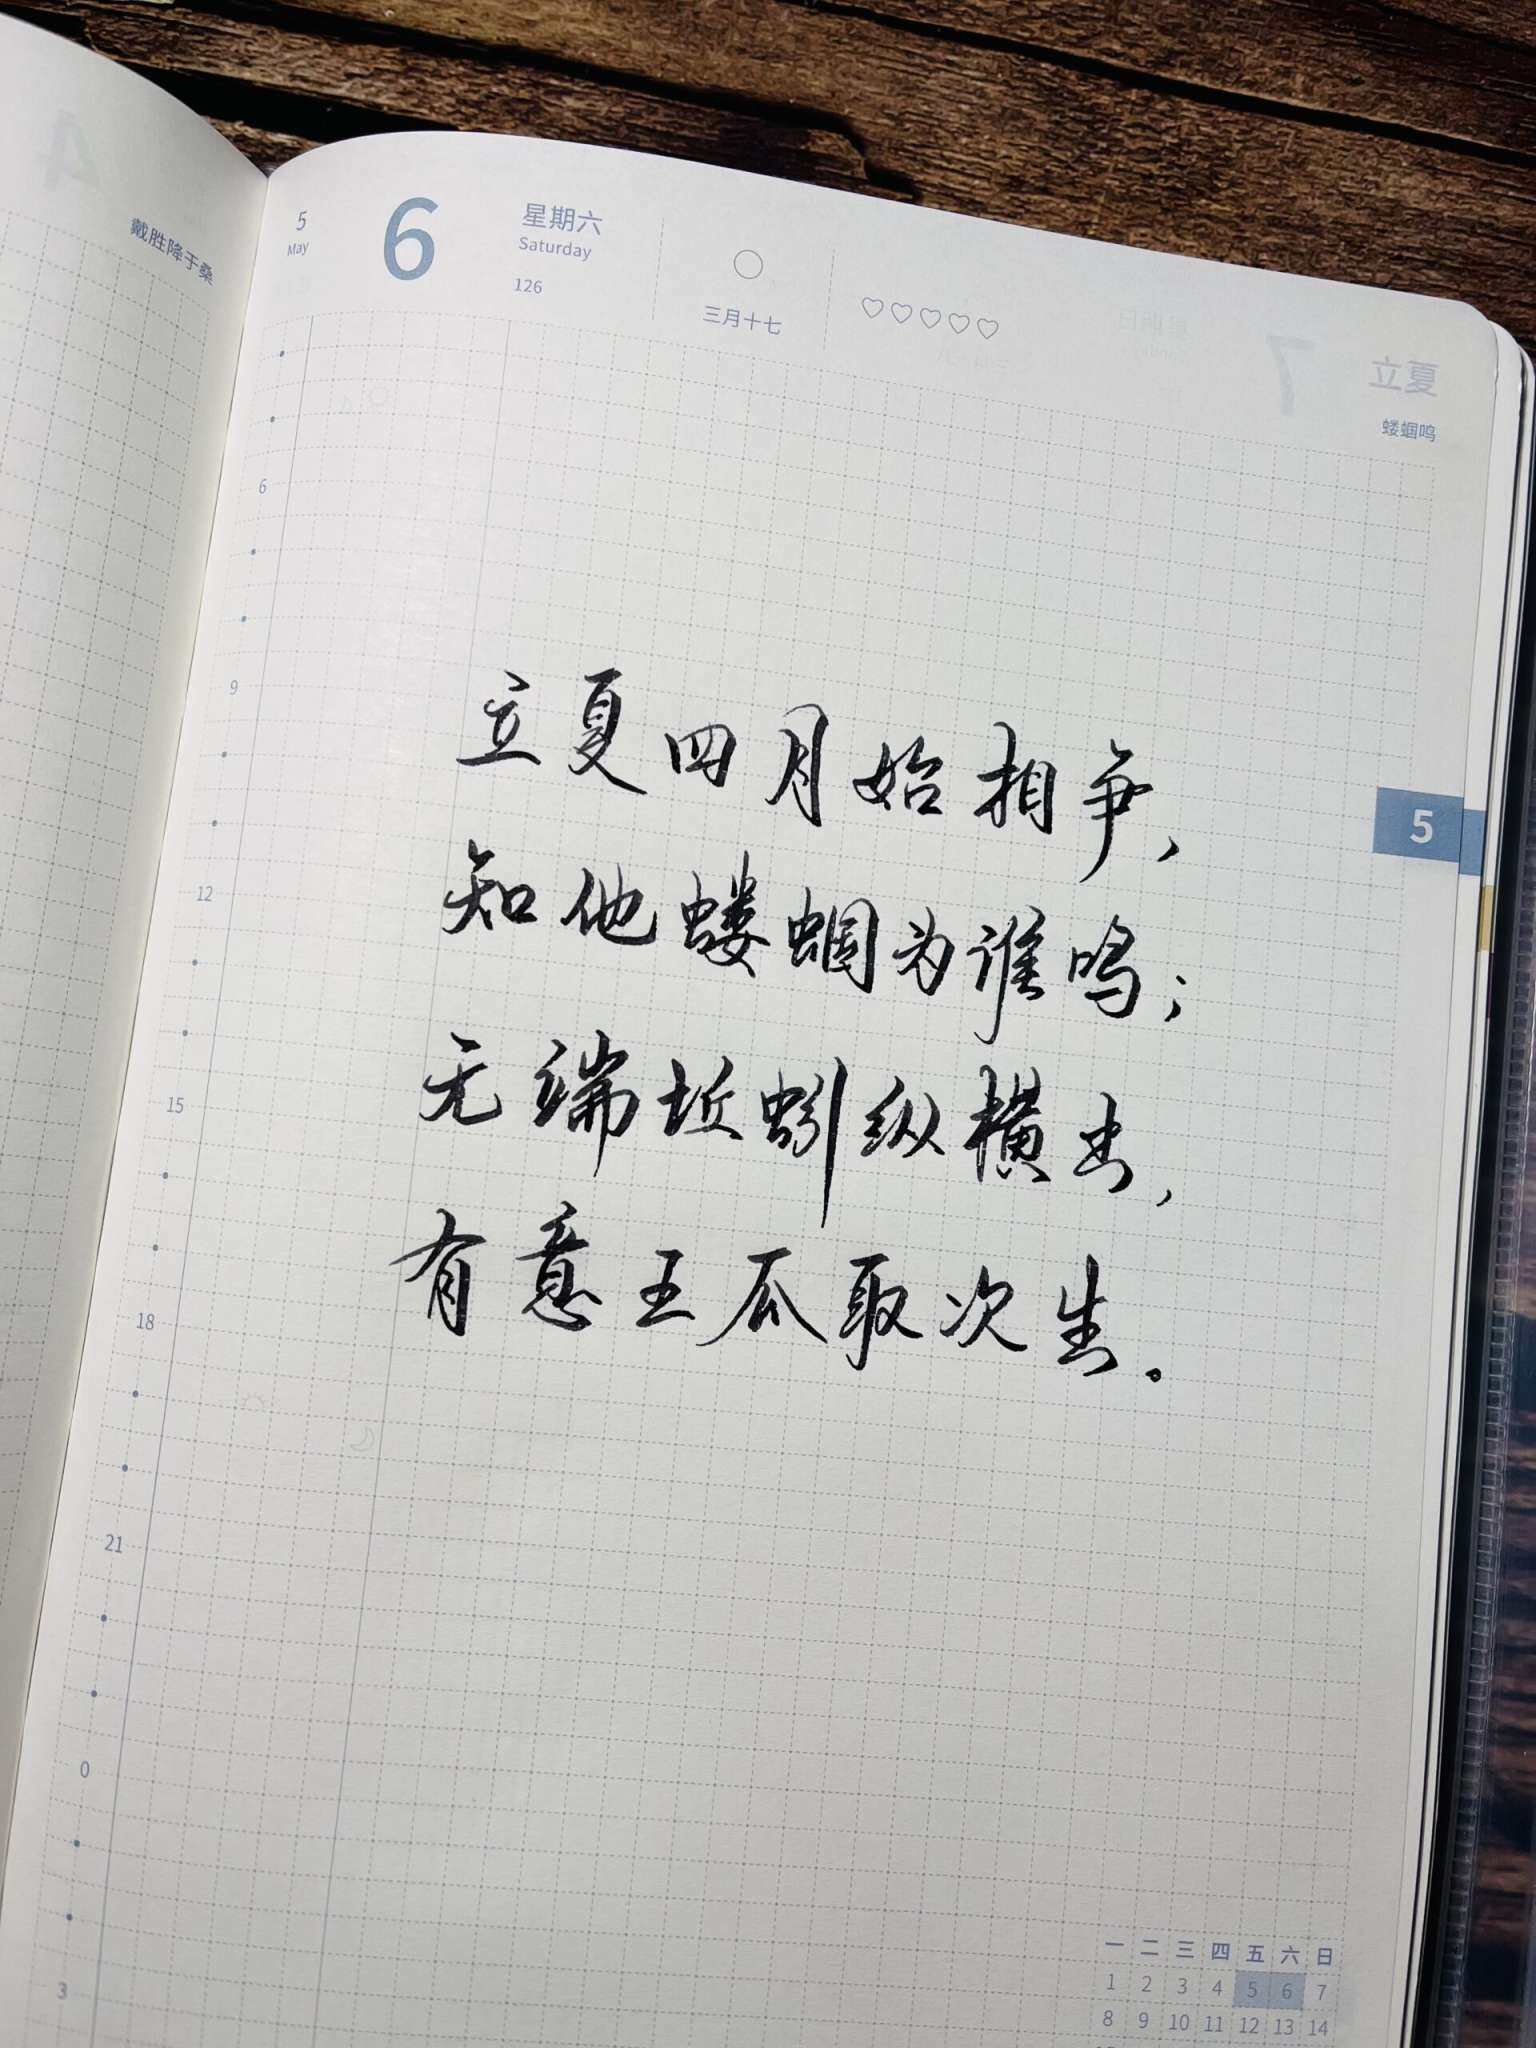 戴胜降于桑
5
May
6
星期六
Saturday
126
三月十七
立夏
蝼蝈鸣
6
9
12
15
18
21
0
3
立夏四月始相争，
知他蝼蝈为谁鸣；
无端坵蚓纵横出，
有意王瓜取次生。
5
一 二 三 四 五 六 日
1 2 3 4 5 6 7
8 9 10 11 12 13 14